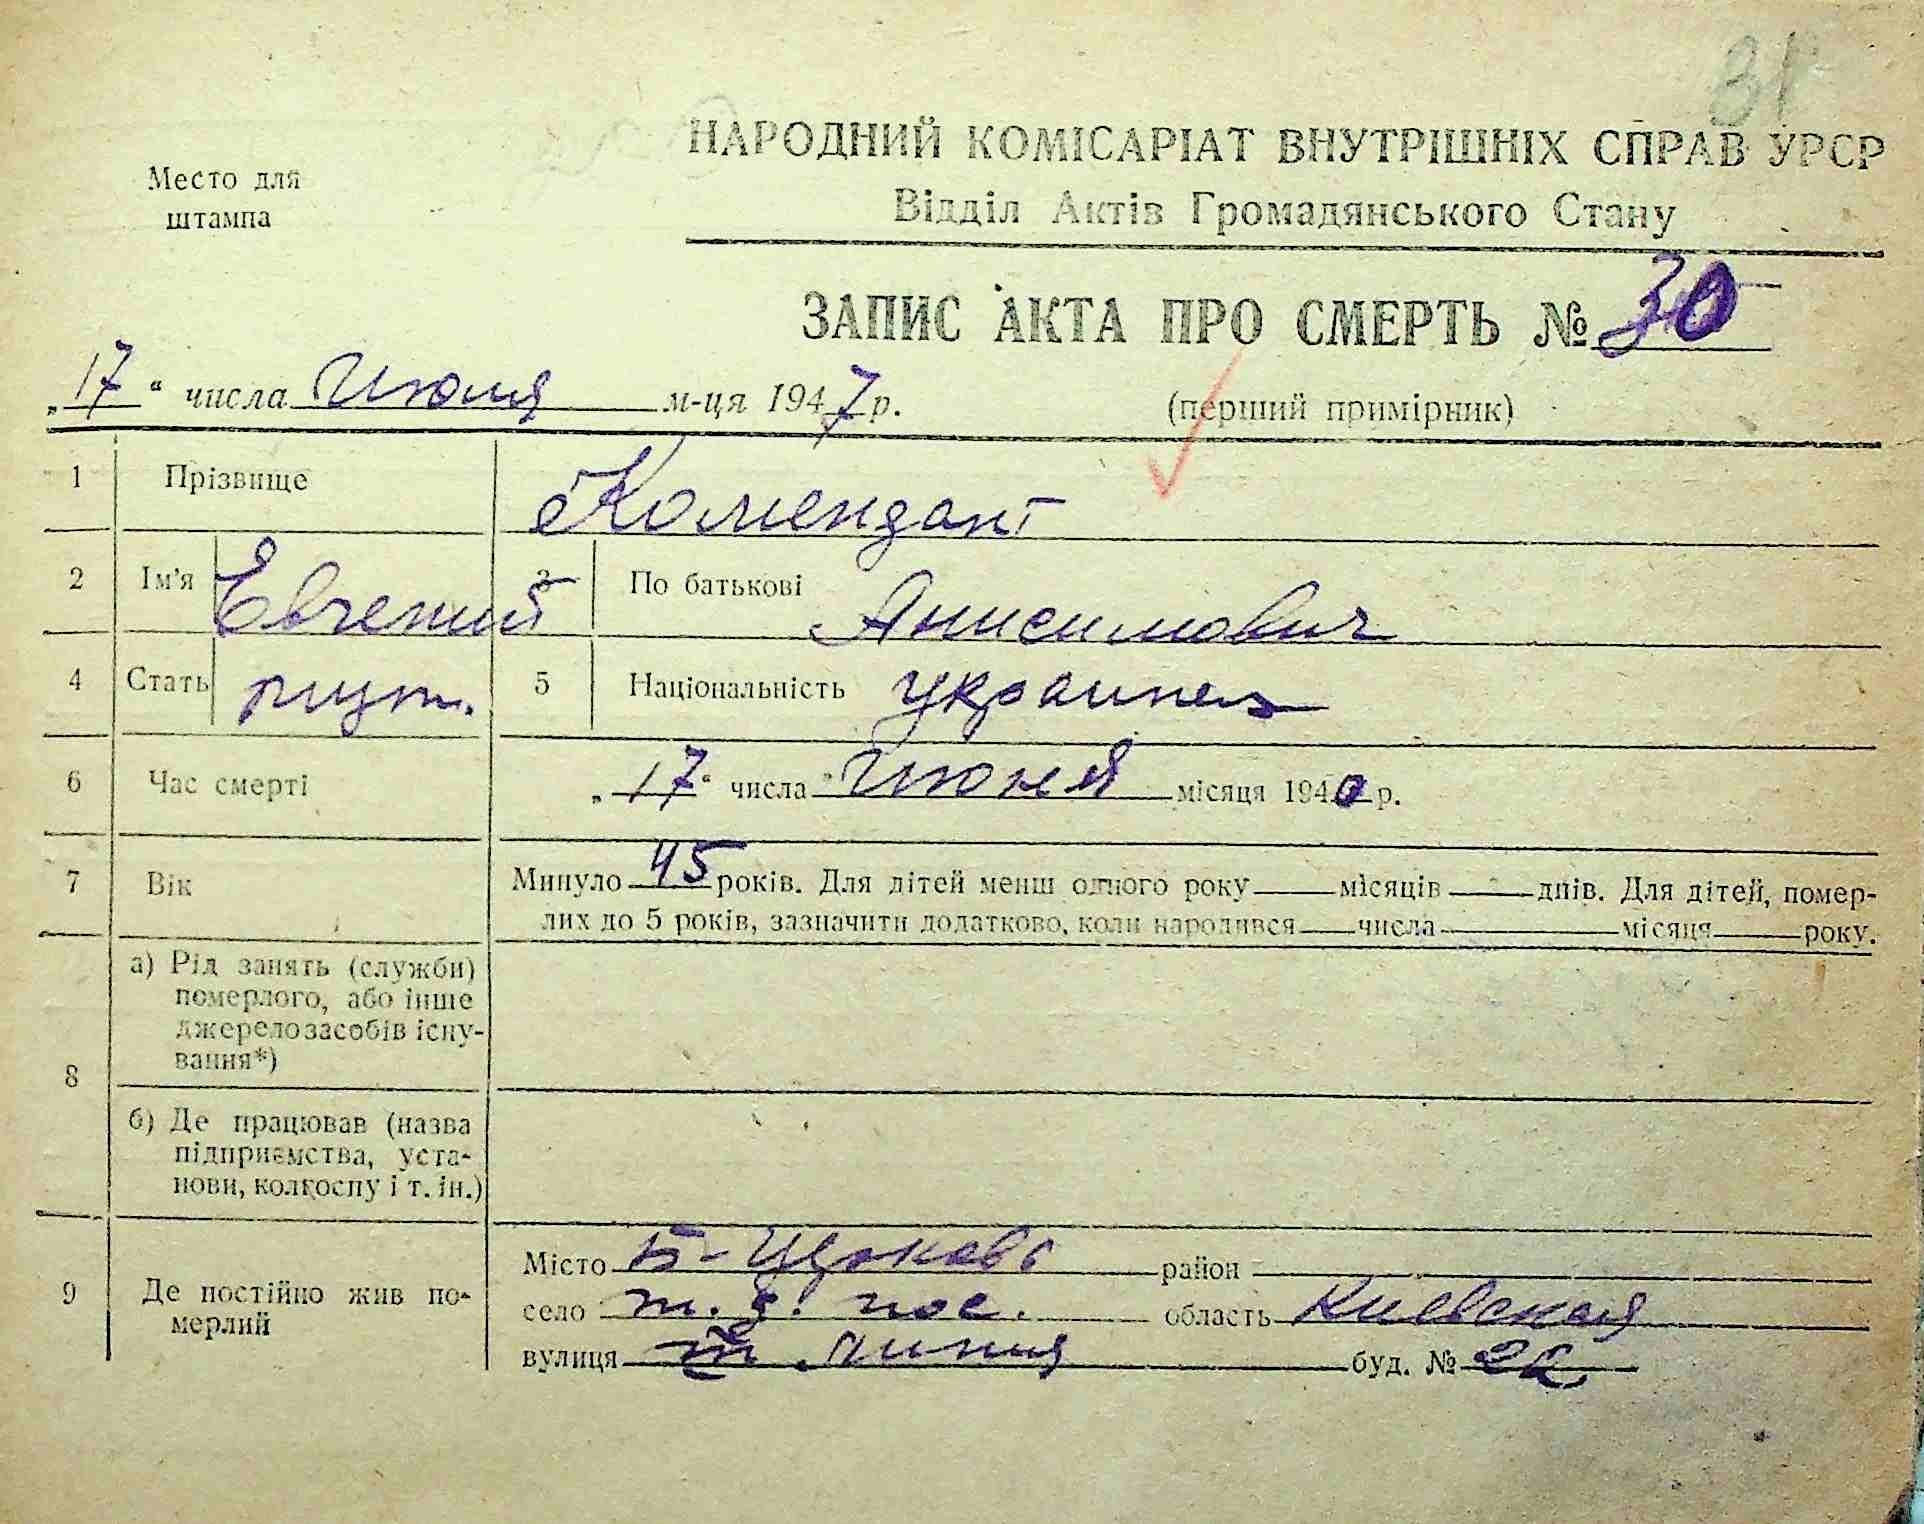 31
НАРОДНИЙ КОМІСАРІАТ ВНУТРІШНІХ СПРАВ УРСР
Відділ Актів Громадянського Стану
Место для
штампа
ЗАПИС АКТА ПРО СМЕРТЬ № 30
„17“ числа Июля м-ця 1947 р. (перший примірник)
1 Прізвище Комендант
2 Ім'я Евгений 3 По батькові Анисимович
4 Стать муж. 5 Національність украинец
6 Час смерті „17“ числа Июня місяця 1940 р.
7 Вік Минуло 45 років. Для дітей менш одного року місяців днів. Для дітей, помер-
лих до 5 років, зазначити додатково, коли народився числа місяця року.
8 а) Рід занять (служби)
померлого, або інше
джерело засобів існу-
вання*)
б) Де працював (назва
підприємства, уста-
нови, колгоспу і т. ін.)
9 Де постійно жив по-
мерлий
Місто Б-Церковь район
село пос. область Киевская
вулиця линия буд. №